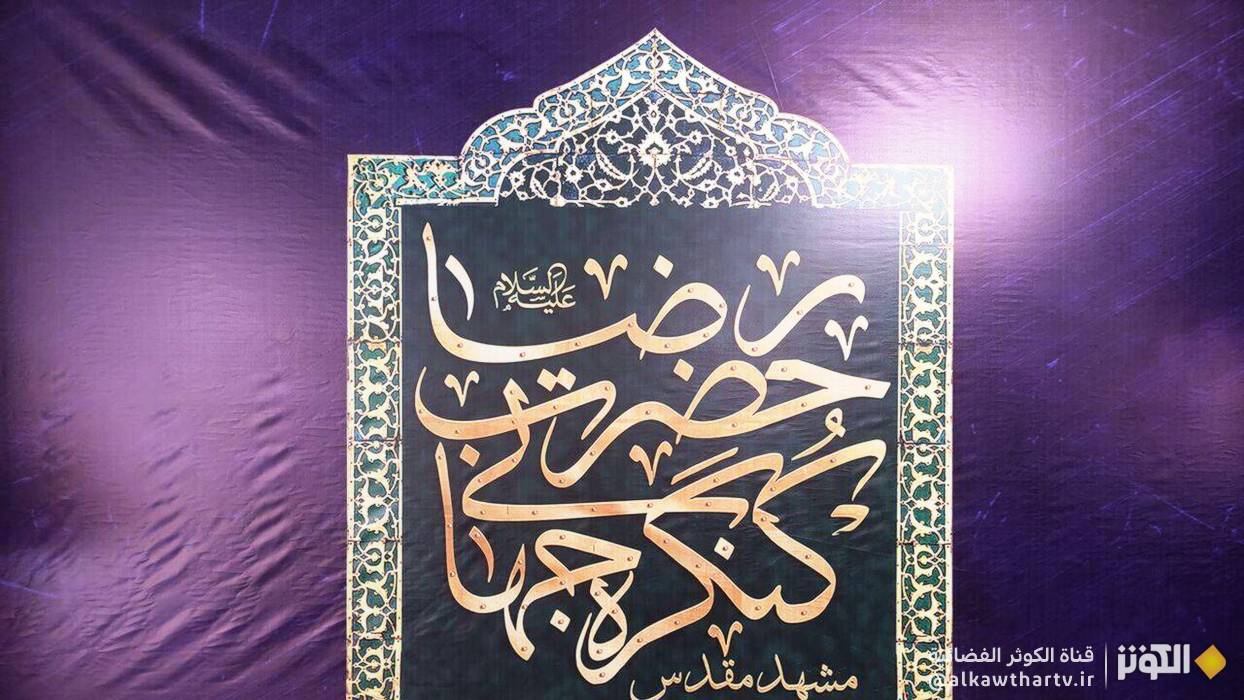 کنگره جهانی
حضرت
رضا
عَلَیهِ السَّلام
مشهد مقدس
قناة الكوثر الفضائية
@alkawthartv.ir
الكوثر